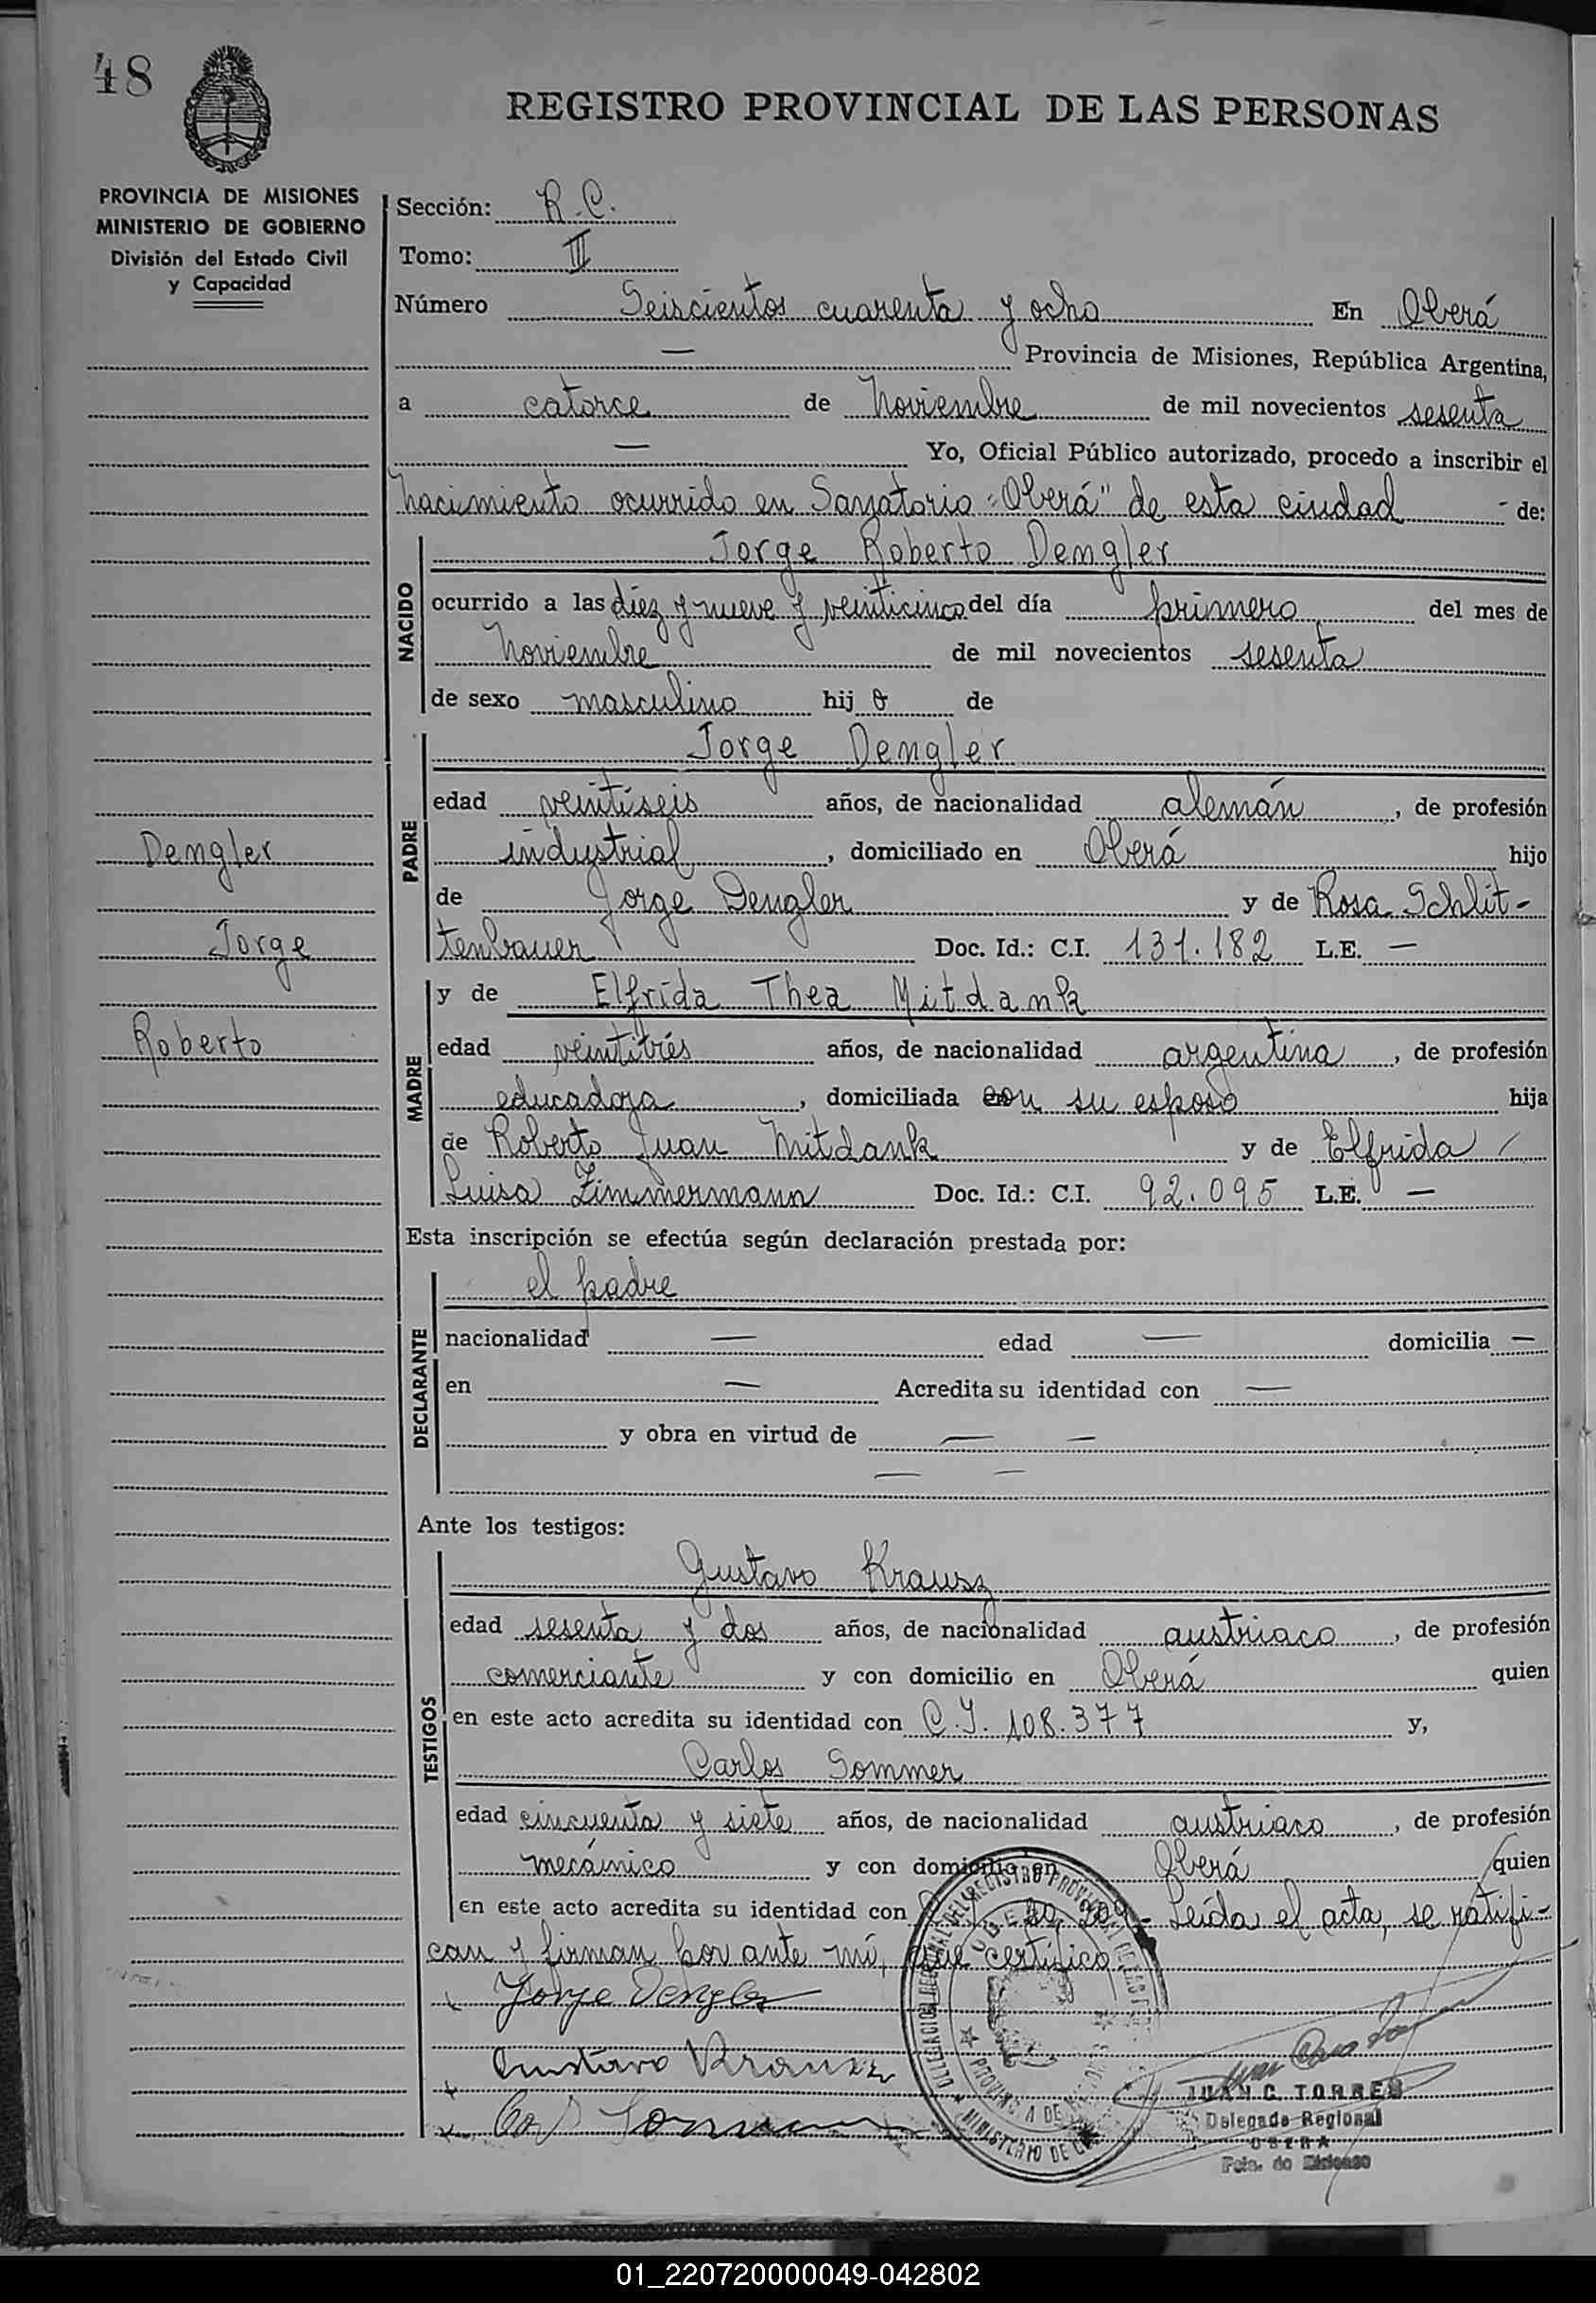 48
REGISTRO PROVINCIAL DE LAS PERSONAS
PROVINCIA DE MISIONES
MINISTERIO DE GOBIERNO
División del Estado Civil
y Capacidad
Sección: R.C.
Tomo: III
Número Seiscientos cuarenta y ocho En Oberá
— Provincia de Misiones, República Argentina,
a catorce de Noviembre de mil novecientos sesenta
— Yo, Oficial Público autorizado, procedo a inscribir el
nacimiento ocurrido en Sanatorio "Oberá" de esta ciudad - de:
Jorge Roberto Dengler
NACIDO
ocurrido a las diez y nueve y veinticinco del día primero del mes de
Noviembre de mil novecientos sesenta
de sexo masculino hij o de
Jorge Dengler
PADRE
edad veintiseis años, de nacionalidad alemán, de profesión
industrial, domiciliado en Oberá hijo
de Jorge Dengler y de Rosa Schlit-
tenbauer Doc. Id.: C.I. 131.182 L.E. —
Dengler
Jorge
Roberto
y de Elfrida Thea Mitdank
MADRE
edad veintitrés años, de nacionalidad argentina, de profesión
educadora, domiciliada con su esposo hija
de Roberto Juan Mitdank y de Elfrida /
Luisa Zimmermann Doc. Id.: C.I. 92.095 L.E. —
Esta inscripción se efectúa según declaración prestada por:
el padre
DECLARANTE
nacionalidad — edad — domicilia —
en — Acredita su identidad con —
y obra en virtud de — —
— —
Ante los testigos:
Gustavo Krausz
TESTIGOS
edad sesenta y dos años, de nacionalidad austriaco, de profesión
comerciante y con domicilio en Oberá quien
en este acto acredita su identidad con C.I. 108.377 y,
Carlos Sommer
edad cincuenta y siete años, de nacionalidad austriaco, de profesión
mecánico y con domicilio en Oberá quien
en este acto acredita su identidad con Leída el acta, se ratifi-
can y firman por ante mí, que certifico.
Jorge Dengler
Gustavo Krausz
JUAN C. TORRES
Delegado Regional
OBERA
Pcia. de Misiones
01_220720000049-042802